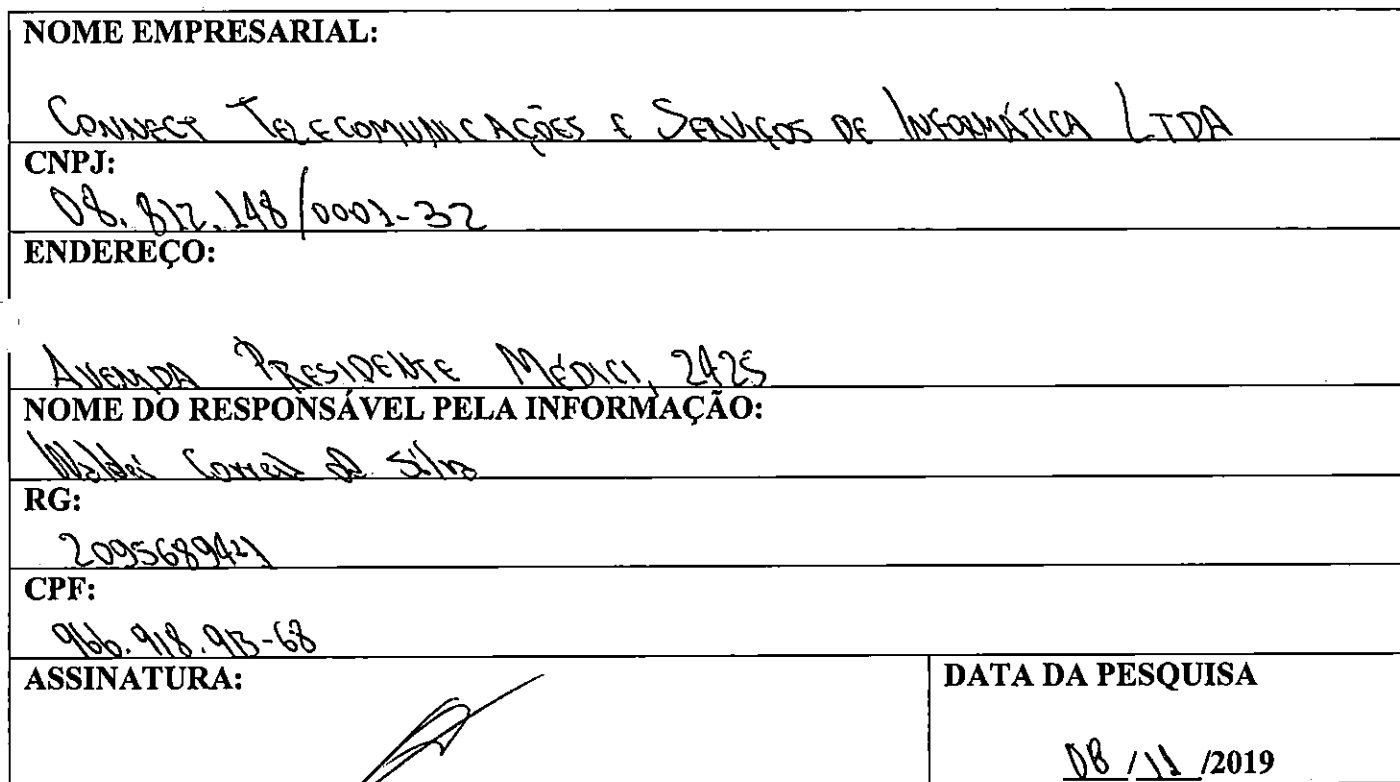 NOME EMPRESARIAL:
CONNECT TELECOMUNICAÇÕES E SERVIÇOS DE INFORMÁTICA LTDA
CNPJ:
08.812.148/0001-32
ENDEREÇO:
AVENIDA PRESIDENTE MÉDICI, 2425
NOME DO RESPONSÁVEL PELA INFORMAÇÃO:
Correia da Silva
RG:
2095689421
CPF:
966.918.913-68
ASSINATURA:
DATA DA PESQUISA
08 / 11 /2019